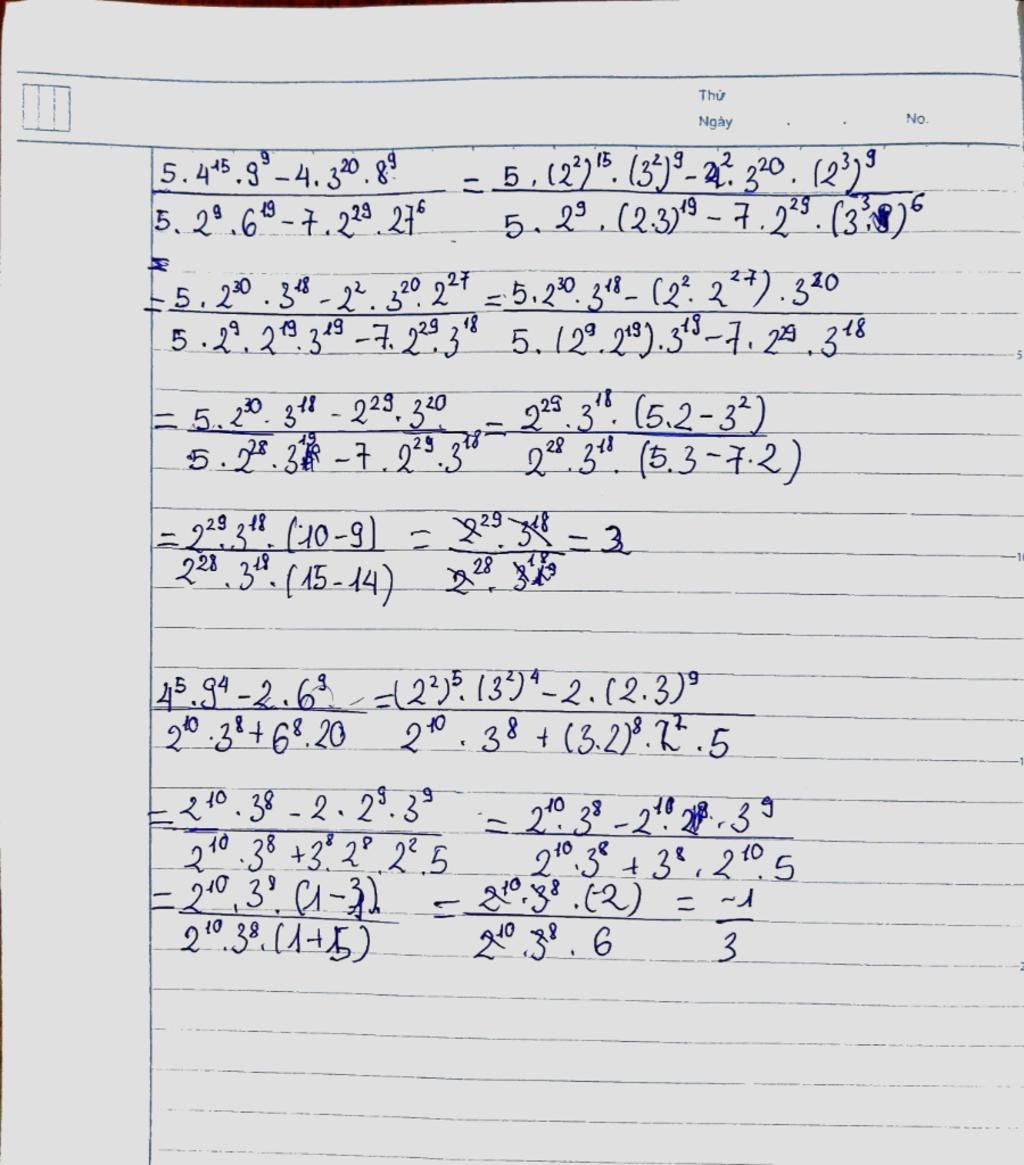 Thứ
Ngày . . No.
5.4¹⁵.9⁹ − 4.3²⁰.8⁹ / 5.2⁹.6¹⁹ − 7.2²⁹.27⁶ = 5.(2²)¹⁵.(3²)⁹ − 2².3²⁰.(2³)⁹ / 5.2⁹.(2.3)¹⁹ − 7.2²⁹.(3³)⁶
= 5.2³⁰.3¹⁸ − 2².3²⁰.2²⁷ / 5.2⁹.2¹⁹.3¹⁹ − 7.2²⁹.3¹⁸ = 5.2³⁰.3¹⁸ − (2².2²⁷).3²⁰ / 5.(2⁹.2¹⁹).3¹⁹ − 7.2²⁹.3¹⁸
= 5.2³⁰.3¹⁸ − 2²⁹.3²⁰ / 5.2²⁸.3¹⁹ − 7.2²⁹.3¹⁸ = 2²⁹.3¹⁸.(5.2 − 3²) / 2²⁸.3¹⁸.(5.3 − 7.2)
= 2²⁹.3¹⁸.(10 − 9) / 2²⁸.3¹⁸.(15 − 14) = 2²⁹.3¹⁸ / 2²⁸.3¹⁸ =
4⁵.9⁴ − 2.6⁹ / 2¹⁰.3⁸ + 6⁸.20 = (2²)⁵.(3²)⁴ − 2.(2.3)⁹ / 2¹⁰.3⁸ + (3.2)⁸.2².5
= 2¹⁰.3⁸ − 2.2⁹.3⁹ / 2¹⁰.3⁸ + 3⁸.2⁸.2².5 = 2¹⁰.3⁸ − 2¹⁰.3⁹ / 2¹⁰.3⁸ + 3⁸.2¹⁰.5
= 2¹⁰.3⁸.(1 − 3) / 2¹⁰.3⁸.(1 + 5) = 2¹⁰.3⁸.(−2) / 2¹⁰.3⁸.6 = −1 / 3